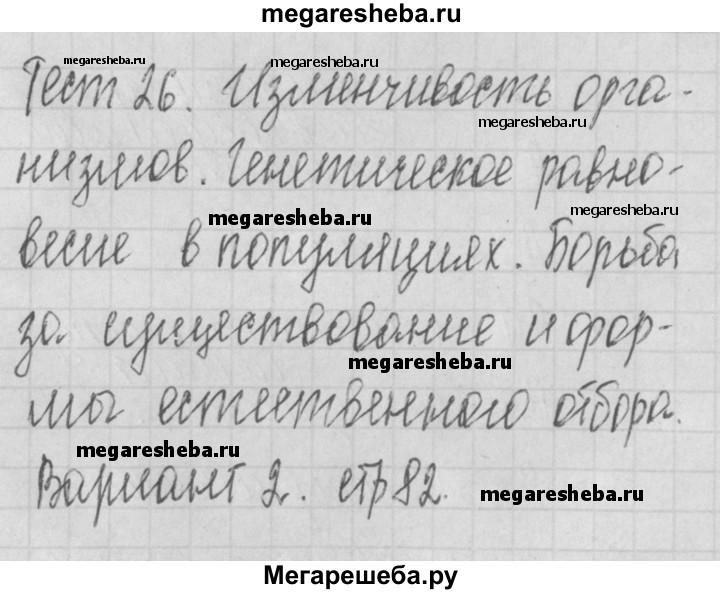 megaresheba.ru
megaresheba.ru
megaresheba.ru
Тест 26. Изменчивость орга-
megaresheba.ru
низмов. Генетическое равно-
megaresheba.ru
megaresheba.ru
весие в популяциях. Борьба
за существование и фор-
megaresheba.ru
мы естественного отбора.
megaresheba.ru
Вариант 2. стр 82.
megaresheba.ru
Мегарешеба.ру